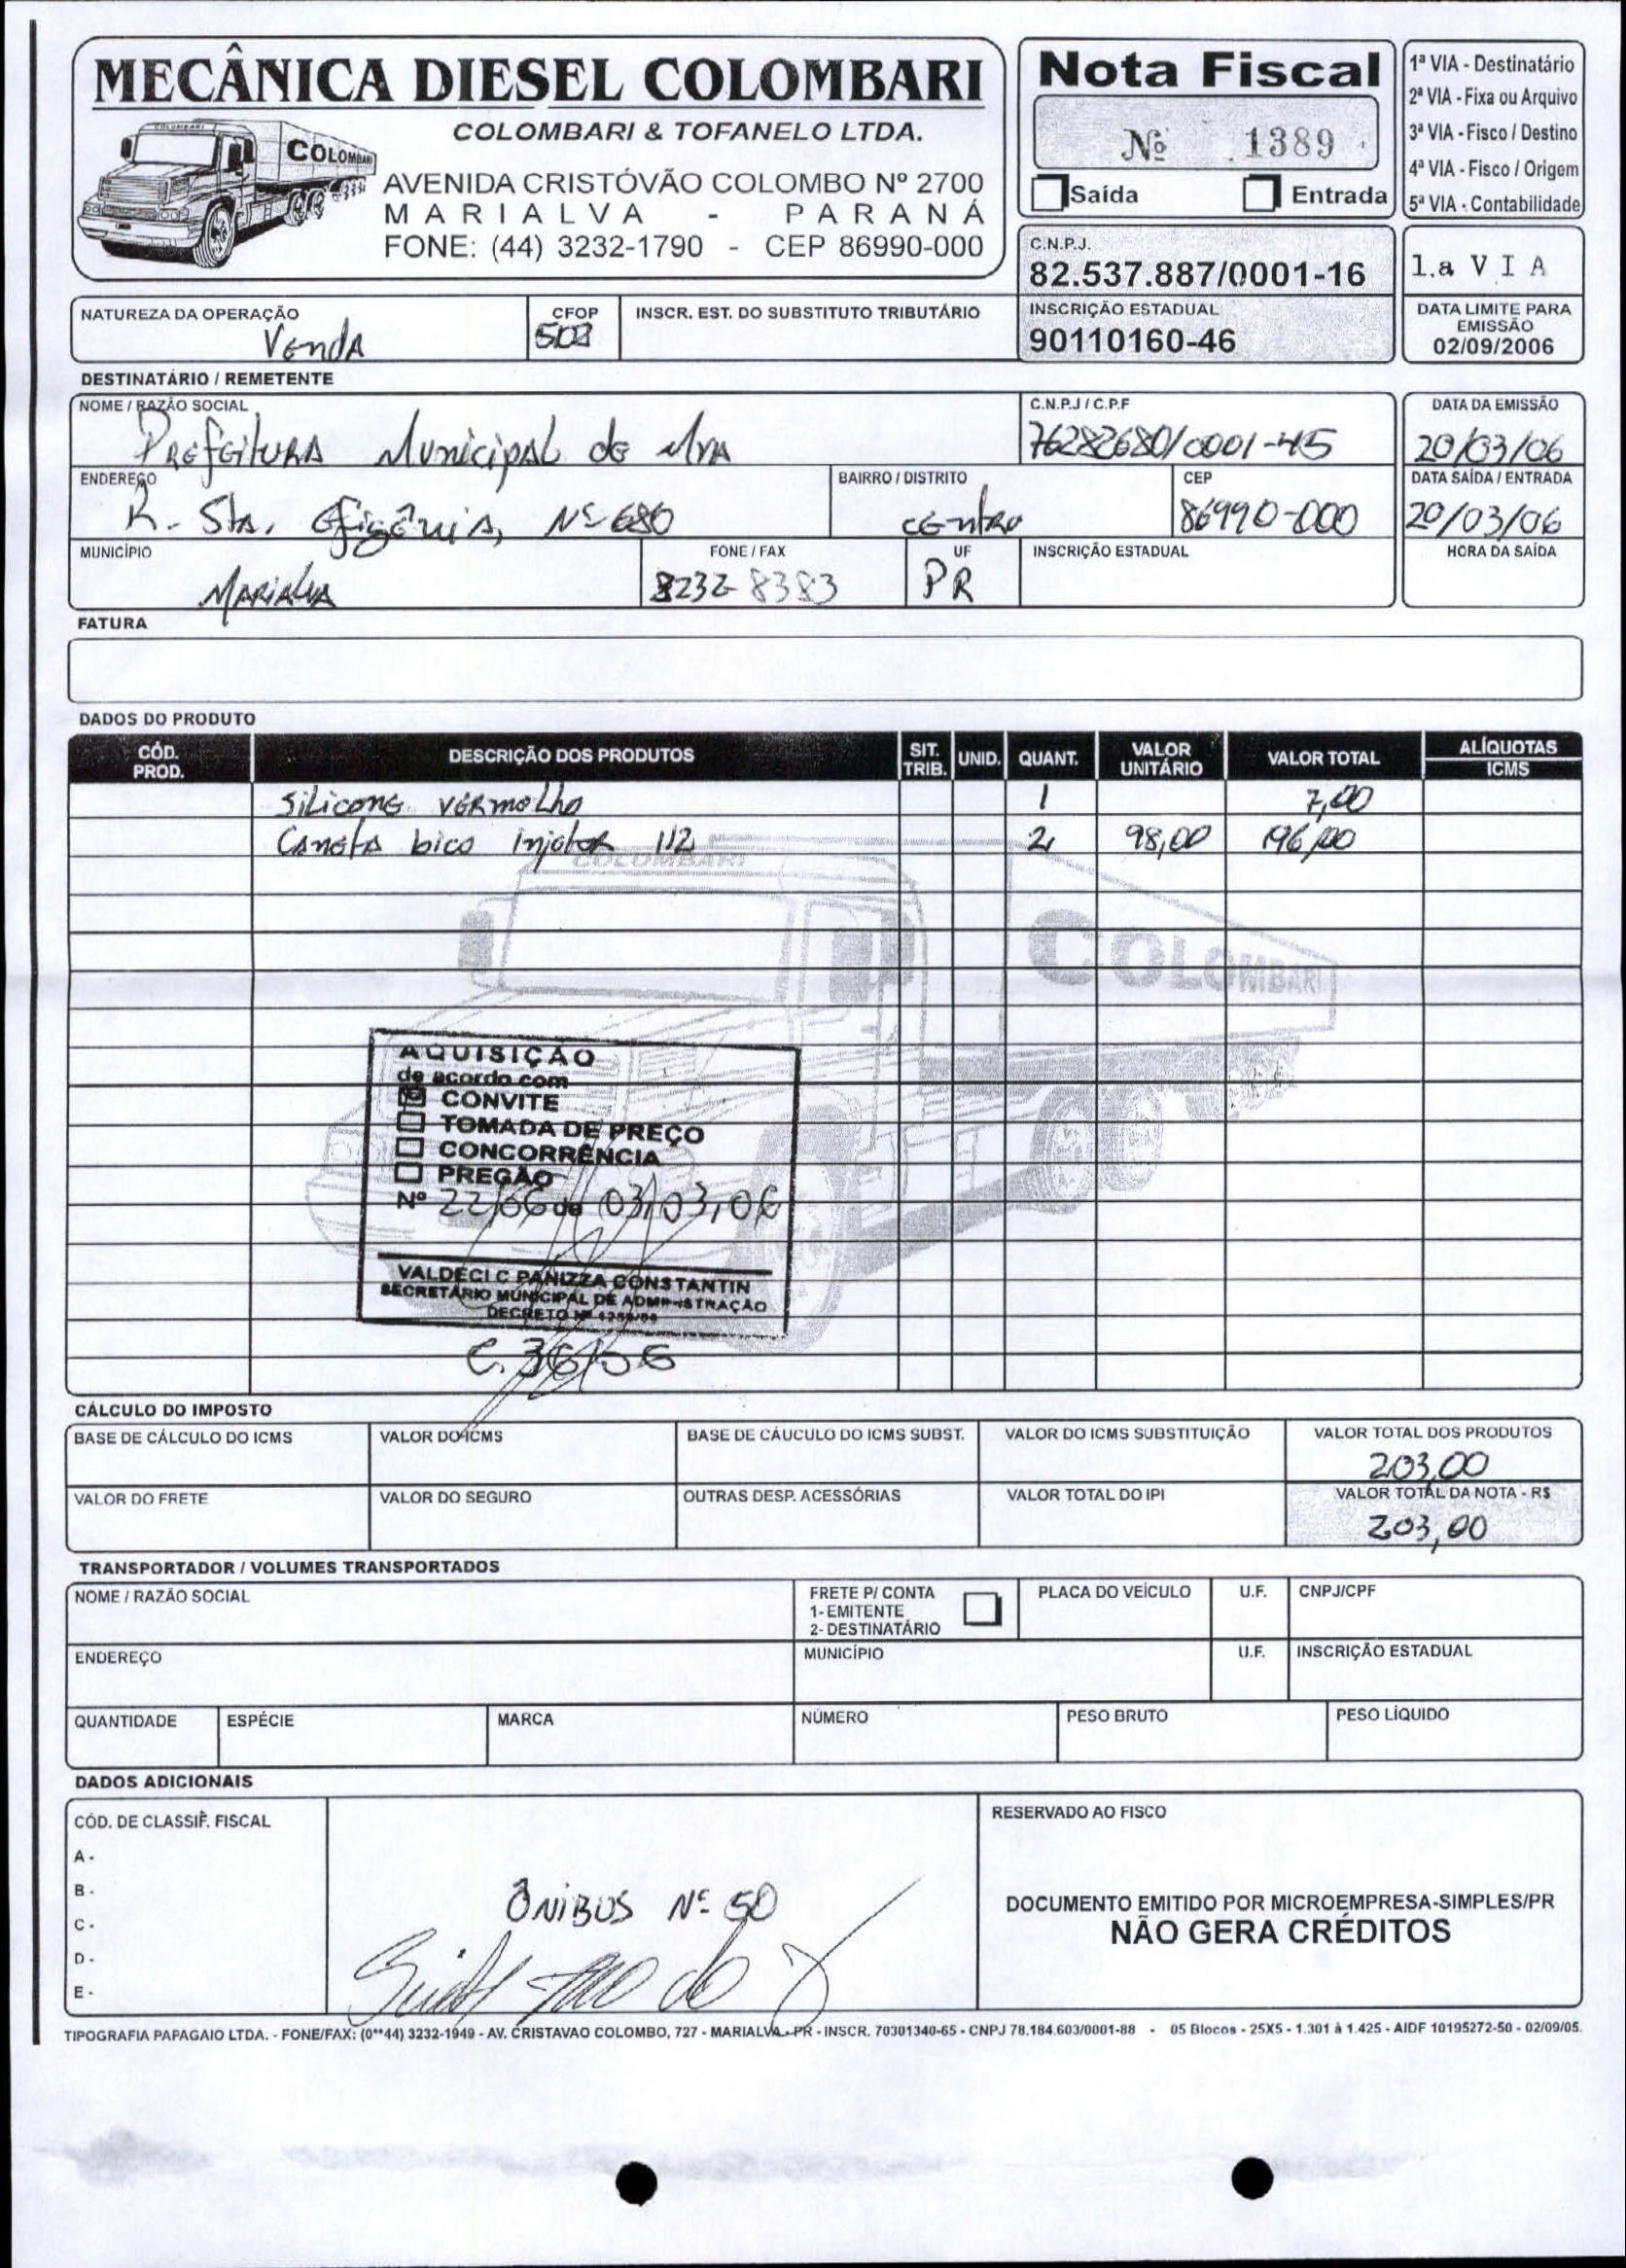 MECÂNICA DIESEL COLOMBARI
COLOMBARI & TOFANELO LTDA.
COLOMBARI
COLOMBARI
AVENIDA CRISTÓVÃO COLOMBO Nº 2700
MARIALVA - PARANÁ
FONE: (44) 3232-1790 - CEP 86990-000
Nota Fiscal
Nº 1389
Saída Entrada
1ª VIA - Destinatário
2ª VIA - Fixa ou Arquivo
3ª VIA - Fisco / Destino
4ª VIA - Fisco / Origem
5ª VIA - Contabilidade
C.N.P.J.
82.537.887/0001-16
1.a VIA
NATUREZA DA OPERAÇÃO
Venda
CFOP
INSCR. EST. DO SUBSTITUTO TRIBUTÁRIO
INSCRIÇÃO ESTADUAL
90110160-46
DATA LIMITE PARA
EMISSÃO
02/09/2006
DESTINATÁRIO / REMETENTE
NOME / RAZÃO SOCIAL
Prefeitura Municipal de Mva
C.N.P.J / C.P.F
76282680/0001-45
DATA DA EMISSÃO
20/03/06
ENDEREÇO
R. Sta. Efigênia, Nº 680
BAIRRO / DISTRITO
centro
CEP
86990-000
DATA SAÍDA / ENTRADA
20/03/06
MUNICÍPIO
Marialva
FONE / FAX
3232-8383
UF
PR
INSCRIÇÃO ESTADUAL
HORA DA SAÍDA
FATURA
DADOS DO PRODUTO
CÓD. PROD. DESCRIÇÃO DOS PRODUTOS SIT. TRIB. UNID. QUANT. VALOR UNITÁRIO VALOR TOTAL ALÍQUOTAS ICMS
Silicone vermelho 1 7,00
Caneta bico injetor 112 2 98,00 196,00
COLOMBARI
COLOMBARI
AQUISIÇÃO
de acordo com
CONVITE
TOMADA DE PREÇO
CONCORRÊNCIA
PREGÃO
Nº 22/06 de 03/03/06
VALDECI C PANIZZA CONSTANTIN
SECRETÁRIO MUNICIPAL DE ADMINISTRAÇÃO
DECRETO Nº
C. 36/06
CÁLCULO DO IMPOSTO
BASE DE CÁLCULO DO ICMS VALOR DO ICMS BASE DE CÁUCULO DO ICMS SUBST. VALOR DO ICMS SUBSTITUIÇÃO VALOR TOTAL DOS PRODUTOS
203,00
VALOR DO FRETE VALOR DO SEGURO OUTRAS DESP. ACESSÓRIAS VALOR TOTAL DO IPI VALOR TOTAL DA NOTA - R$
203,00
TRANSPORTADOR / VOLUMES TRANSPORTADOS
NOME / RAZÃO SOCIAL
FRETE P/ CONTA
1- EMITENTE
2- DESTINATÁRIO
PLACA DO VEÍCULO U.F. CNPJ/CPF
ENDEREÇO MUNICÍPIO U.F. INSCRIÇÃO ESTADUAL
QUANTIDADE ESPÉCIE MARCA NÚMERO PESO BRUTO PESO LÍQUIDO
DADOS ADICIONAIS
CÓD. DE CLASSIF. FISCAL
A -
B -
C -
D -
E -
Ônibus Nº 50
RESERVADO AO FISCO
DOCUMENTO EMITIDO POR MICROEMPRESA-SIMPLES/PR
NÃO GERA CRÉDITOS
TIPOGRAFIA PAPAGAIO LTDA. - FONE/FAX: (0**44) 3232-1949 - AV. CRISTAVAO COLOMBO, 727 - MARIALVA - PR - INSCR. 70301340-65 - CNPJ 78.184.603/0001-88 - 05 Blocos - 25X5 - 1.301 à 1.425 - AIDF 10195272-50 - 02/09/05.